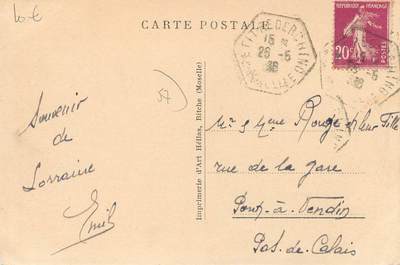 10 €
CARTE POSTALE
15 H
26 - 5
38
RÉPUBLIQUE FRANÇAISE
20c
POSTES
57
Souvenir
de
Lorraine
Emile
Imprimerie d'Art Hellas, Bitche (Moselle)
Mr & Mme Rouge et leur Fille
rue de la gare
Pont-à-Vendin
Pas-de-Calais